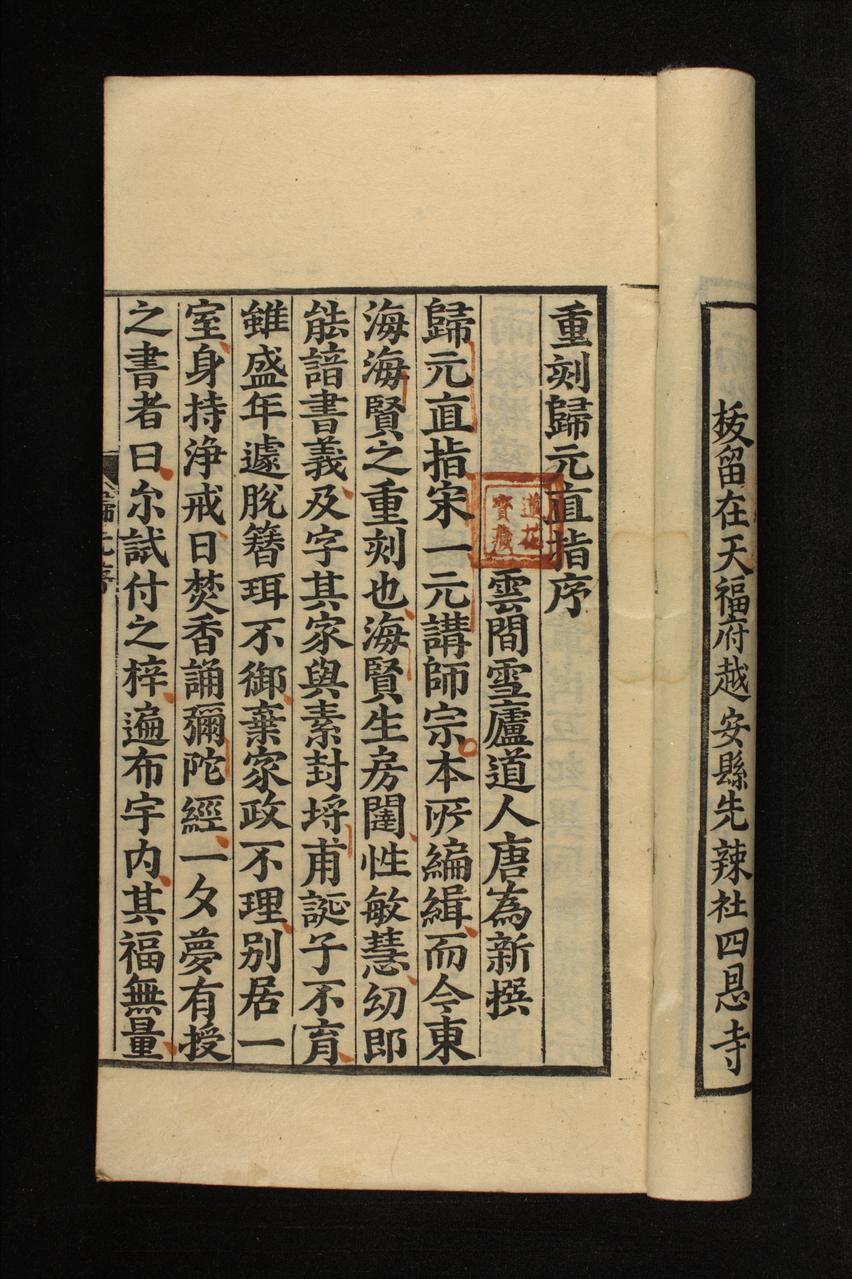 板留在天福府越安縣先辣社四恩寺
重刻歸元直指序
雲間雪廬道人唐為新撰
歸元直指宋一元講師宗本所編緝而今東
海海賢之重刻也海賢生房闥性敏慧幼即
能諳書義及字其家與素封埓甫誕子不育
雖盛年遽脫簪珥不御棄家政不理別居一
室身持淨戒日焚香誦彌陀經一夕夢有授
之書者曰尔試付之梓遍布宇内其福無量